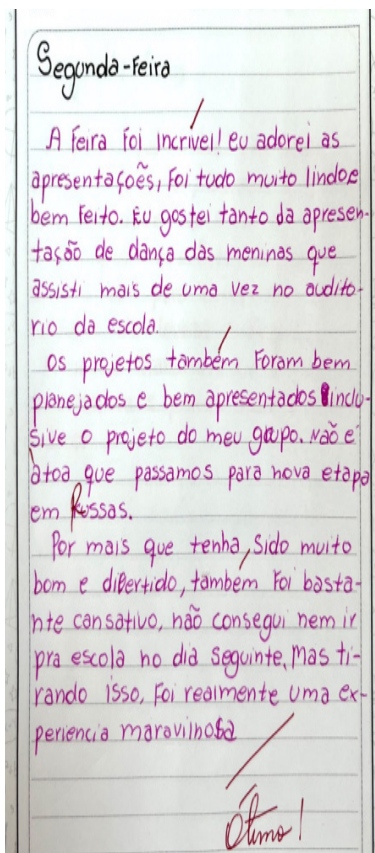 Segunda-Feira
A Feira foi incrível! eu adorei as
apresentações, foi tudo muito lindo e
bem feito. Eu gostei tanto da apresen-
tação de dança das meninas que
assisti mais de uma vez no audito-
rio da escola.
Os projetos também foram bem
planejados e bem apresentados inclu-
sive o projeto do meu grupo. Não é
àtoa que passamos para nova etapa
em Russas.
Por mais que tenha, sido muito
bom e divertido, também foi basta-
nte cansativo, não consegui nem ir
pra escola no dia seguinte, mas ti-
rando isso, foi realmente uma ex-
periencia maravilhosa
Ótimo!